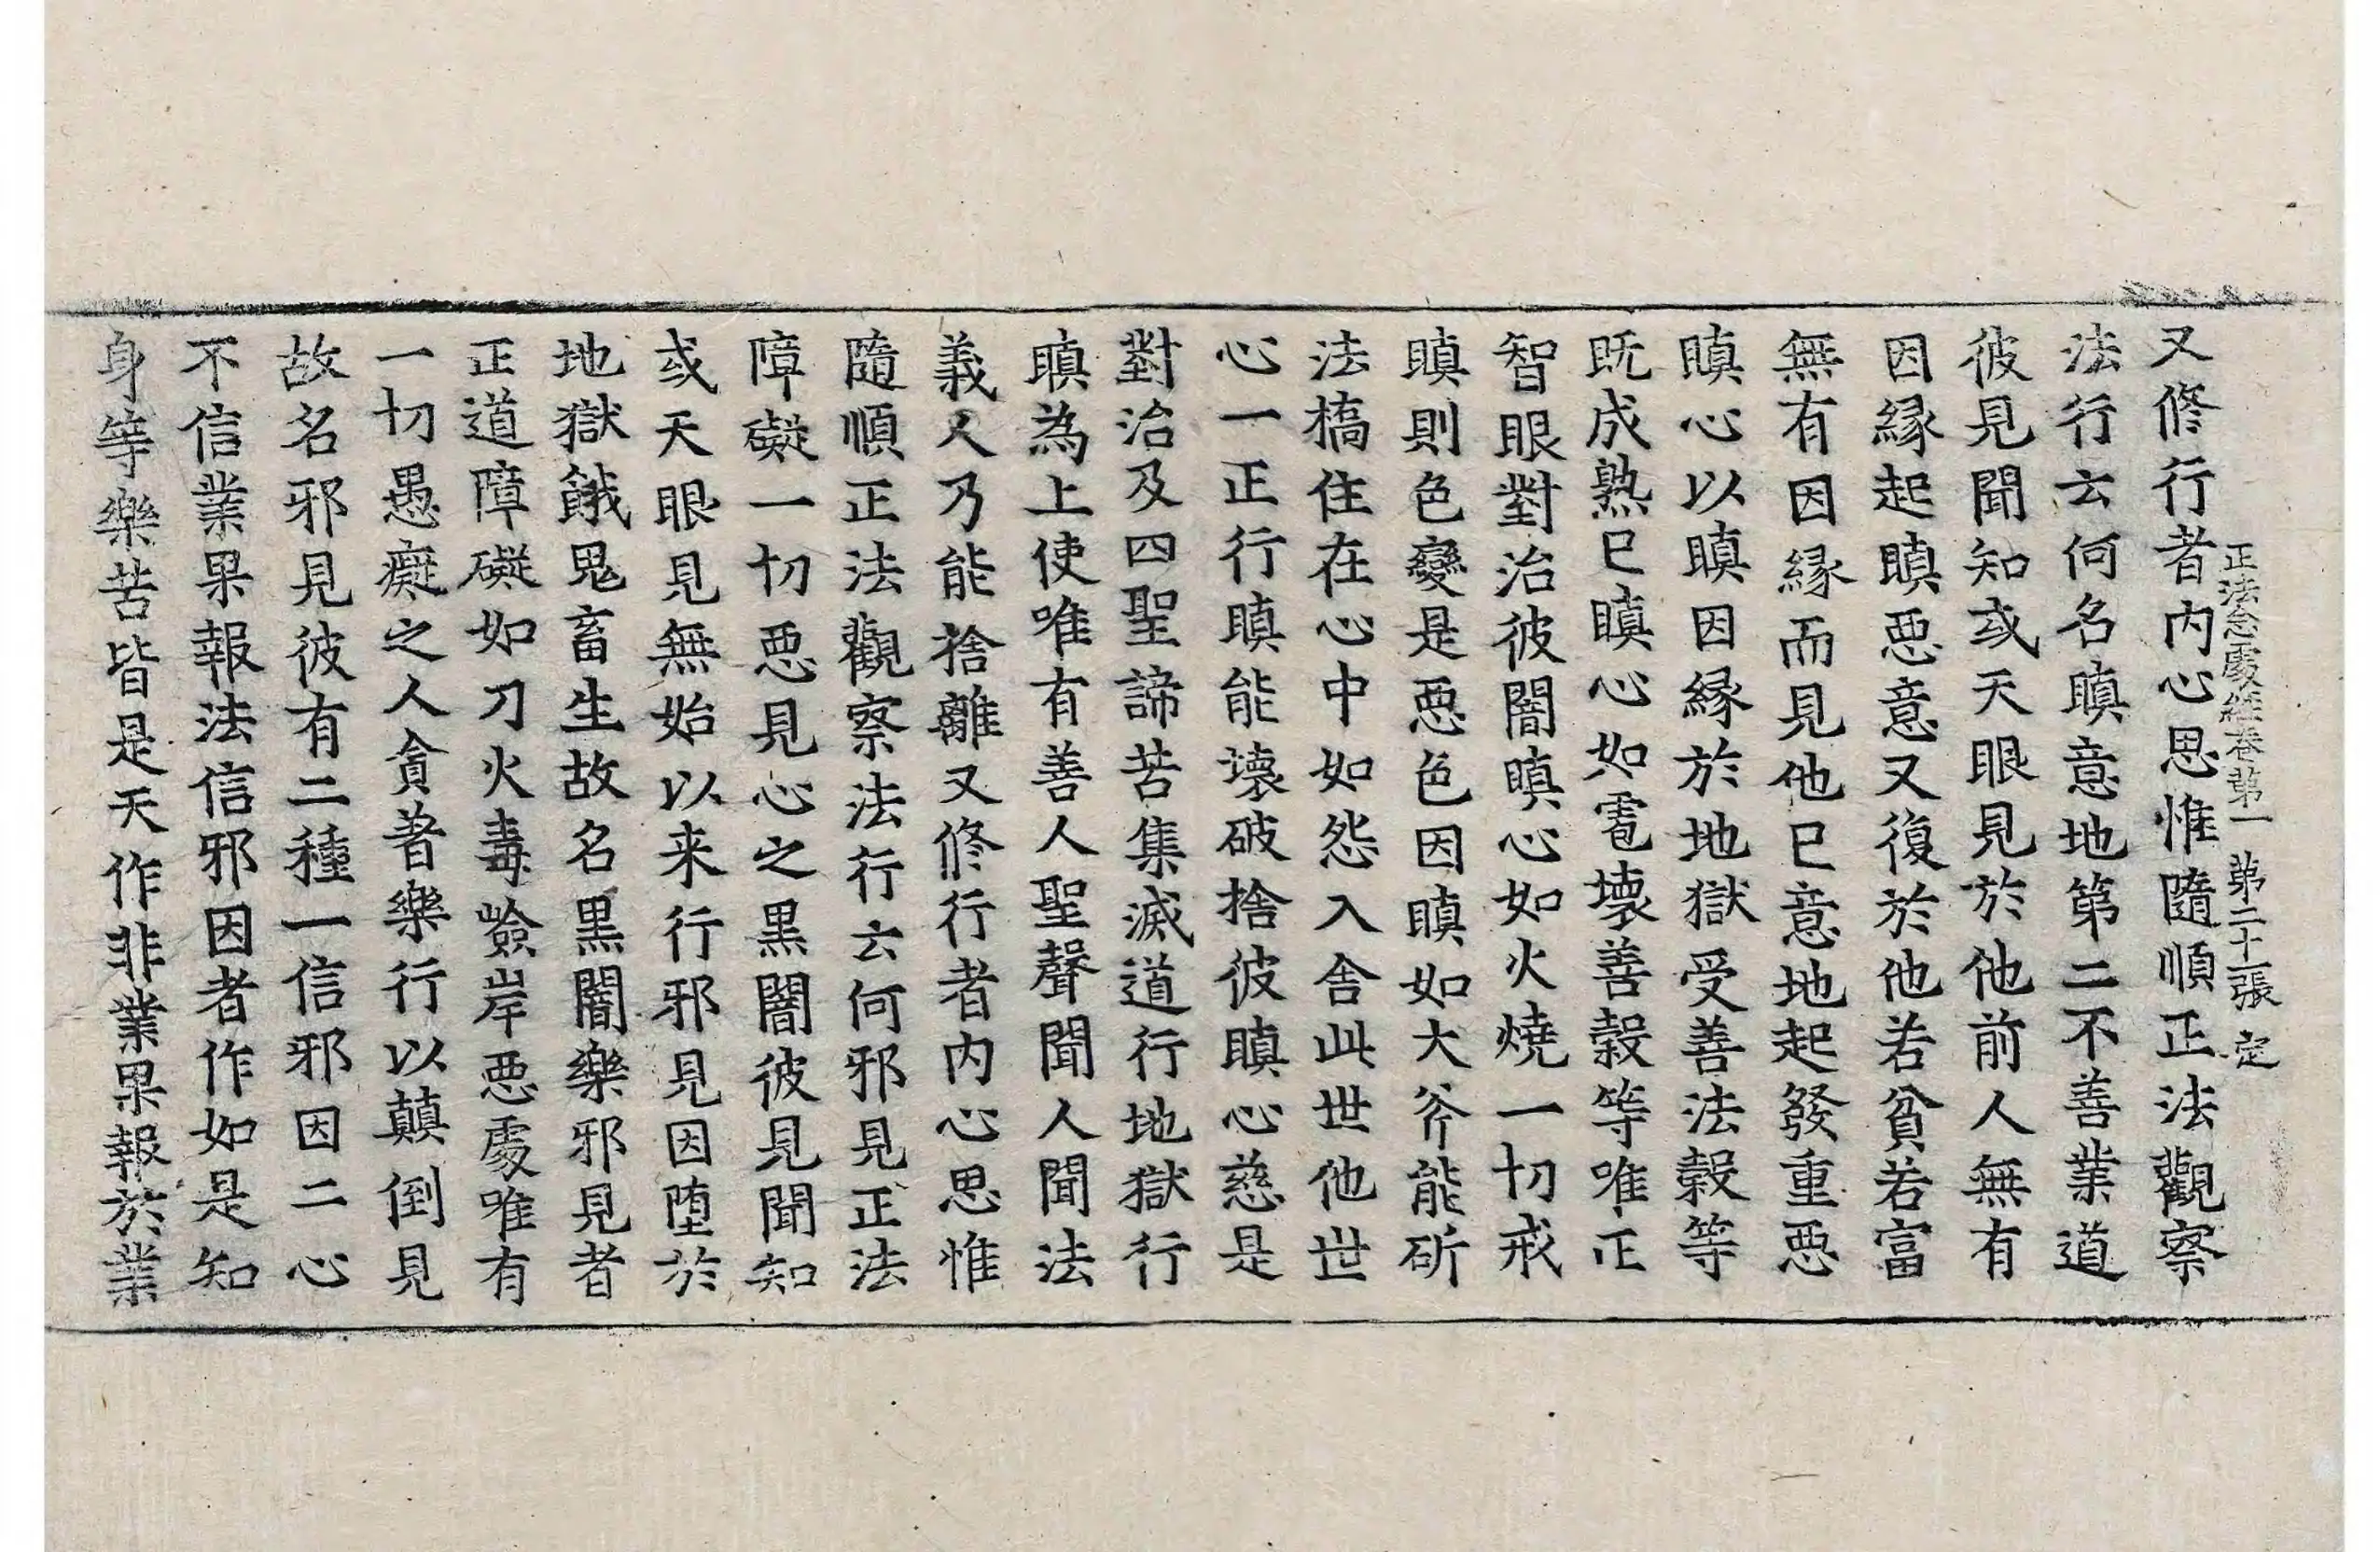 正法念處經卷第一 第二十張 定
又修行者内心思惟隨順正法觀察
法行云何名瞋意地第二不善業道
彼見聞知或天眼見於他前人無有
因緣起瞋惡意又復於他若貧若富
無有因緣而見他已意地起發重惡
瞋心以瞋因緣於地獄受善法穀等
既成熟已瞋心如雹壞善穀等唯正
智眼對治彼闇瞋心如火燒一切戒
瞋則色變是惡色因瞋如大斧能斫
法橋住在心中如怨入舍此世他世
心一正行瞋能壞破捨彼瞋心慈是
對治及四聖諦苦集滅道行地獄行
瞋為上使唯有善人聖聲聞人聞法
義人乃能捨離又修行者内心思惟
隨順正法觀察法行云何邪見正法
障礙一切惡見心之黑闇彼見聞知
或天眼見無始以来行邪見因堕於
地獄餓鬼畜生故名黑闇樂邪見者
正道障礙如刀火毒嶮岸惡處唯有
一切愚癡之人貪著樂行以顛倒見
故名邪見彼有二種一信邪因二心
不信業果報法信邪因者作如是知
身等樂苦皆是天作非業果報於業